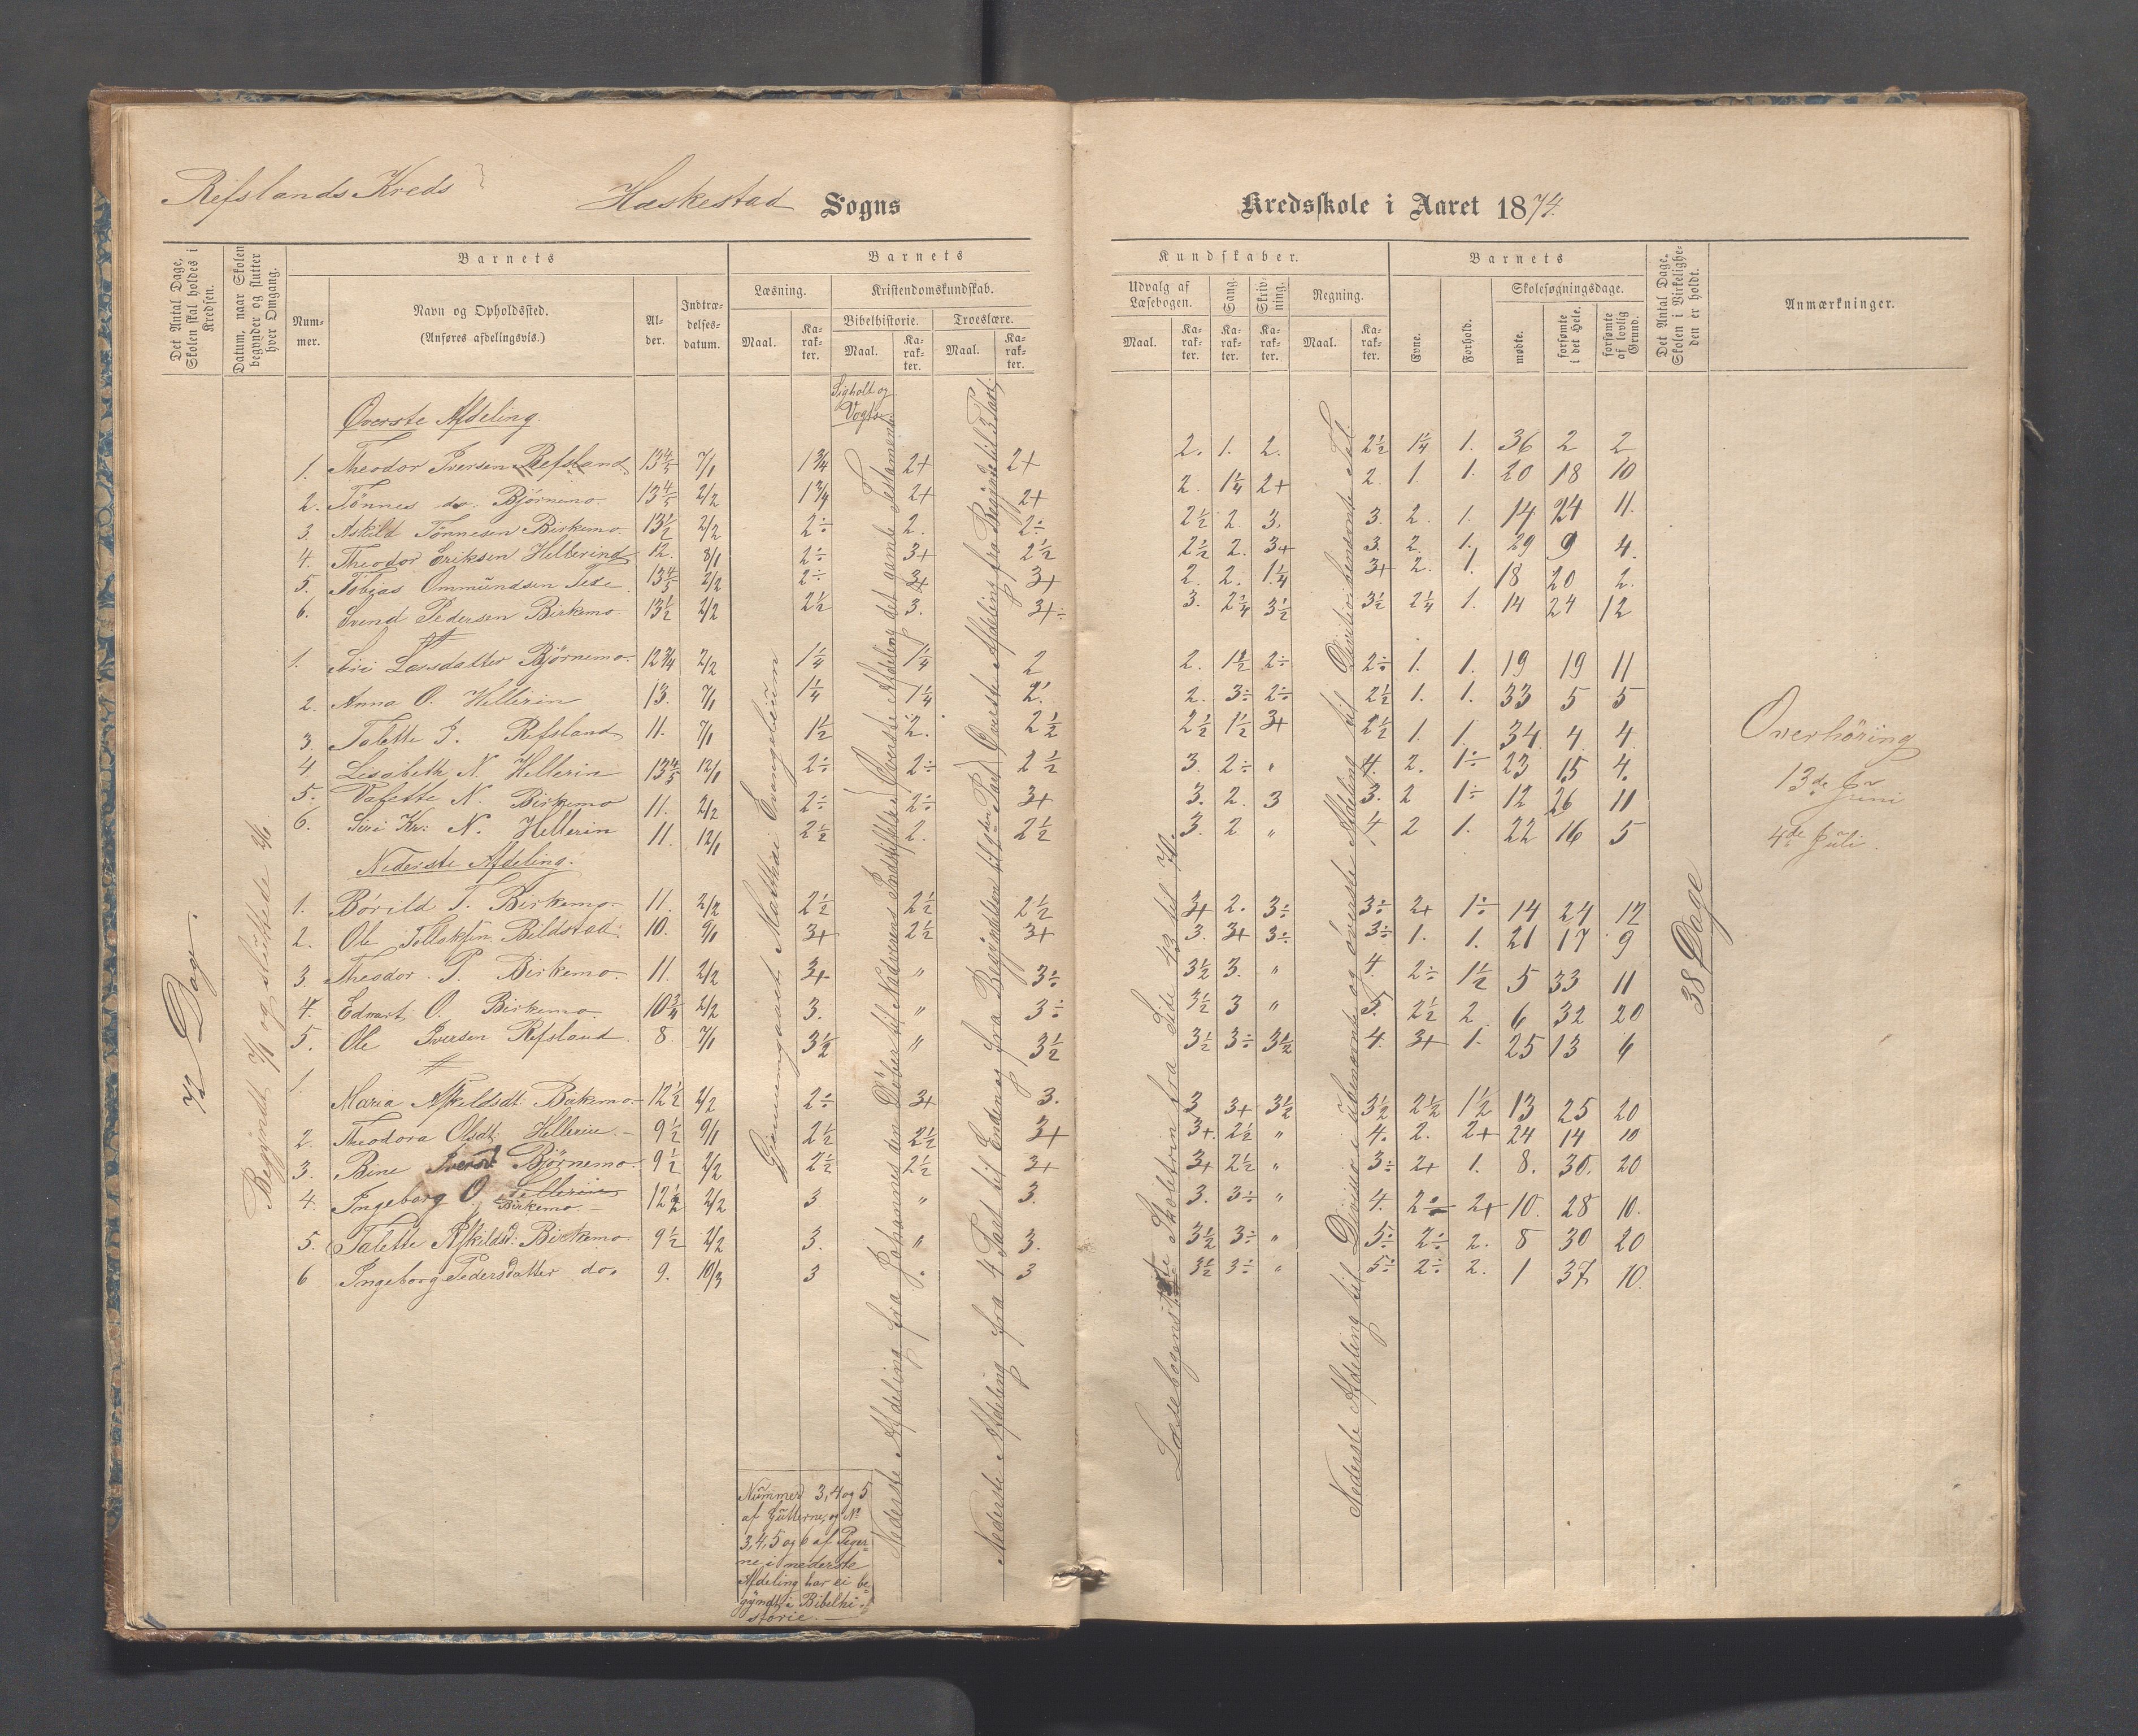 Refslands Kreds
Heskestad Sogns
Kredsskole i Aaret 1874.
Det Antal Dage, Skolen skal holdes i Kredsen.
Datum, naar Skolen begynder og slutter hver Omgang.
Barnets
Nummer.
Navn og Opholdssted.
(Anføres afdelingsvis.)
Alder.
Indtrædelsesdatum.
Barnets
Læsning.
Maal.
Karakter.
Kristendomskundskab.
Bibelhistorie.
Maal.
Karakter.
Troeslære.
Maal.
Karakter.
Kundskaber.
Udvalg af Læsebogen.
Maal.
Karakter.
Sang.
Karakter.
Skrivning.
Karakter.
Regning.
Maal.
Karakter.
Barnets
Evne.
Forhold.
Skolesøgningsdage.
mødte.
forsømte i det Hele.
forsømte af lovlig Grund.
Det Antal Dage, Skolen i Virkeligheden er holdt.
Anmærkninger.
72 Dage.
Øverste Afdeling.
Vogts
1. Theodor Iversen Refsland 13 4/5 7/1 1 3/4 2+ 2+ 2. 1. 2. 2 1/2 1 1/4 1. 36 2 2
2. Tønnes do. Bjørnemo 13 4/5 2/2 1 3/4 2+ 2+ 2. 1 1/4 2+ 2. 1. 1. 20 18 10
3. Askild Tønnesen Birkemo 13 1/2 2/2 2÷ 2. 2÷ 2 1/2 2. 3. 3. 2. 1. 14 24 11.
4. Theodor Eriksen Hellerind 12. 8/1 2÷ 3+ 2 1/2 2 1/2 2. 3+ 3. 2. 1. 29 9 4.
5. Tobias Ommundsen 13 4/5 2/2 2÷ 3+ 3+ 2. 2. 1 1/4 3+ 2. 1. 18 20 2.
6. Svend Pedersen Birkemo 13 1/2 2/2 2 1/2 3. 3+÷ 3. 2 1/4 3 1/2 3 1/2 2 1/4 1. 14 24 12
1. Siri Lassdatter Bjørnemo. 12 3/4 2/2 1 1/4 1 1/4 2 2. 1 1/2 2÷ 2÷ 1. 1. 19 19 11
2. Anna O. Hellerin 13. 7/1 1 1/4 1 1/4 2. 2. 3÷ 2÷ 2 1/2 1. 1. 33 5 5
3. Talette I. Refsland 11. 7/1 1 1/2 2. 2 1/2 2 1/2 1 1/2 3+ 2 1/2 1. 1. 34. 4. 4.
4. Lisabeth N. Hellerin 13 4/5 12/1 2÷ 2÷ 2 1/2 3. 2÷ " 4. 2. 1÷ 23 15 4.
5. N. Birkemo 11. 2/2 2÷ 2÷ 3+ 3. 2. 3 3. 2 1÷ 12 26 11
6. Siri Kr: N. Hellerin 11. 12/1 2 1/2 2. 2 1/2 3. 2. " 4 2 1. 22 16 5
Nederste Afdeling.
1. Børild T. Birkemo 11. 2/2 2 1/2 2 1/2 2 1/2 3+ 2. 3÷ 3÷ 2+ 1÷ 14 24 12
2. Ole Tollaksen Bildstad 10. 9/1 3+ 2 1/2 3+ 3. 3+ 3÷ 3÷ 1. 1. 21 17 9
3. Theodor P. Birkemo 11. 2/2 3+ " 3÷ 3 1/2 3. " 4. 2÷ 1 1/2 5 33 11
4. Edvart O. Birkemo 10 3/4 2/2 3. " 3÷ 3 1/2 3 " 5. 2 1/2 2 6 32 20
5. Ole Iversen Refsland 8 7/1 3 1/2 " 3 1/2 3 1/2 3÷ 3 1/2 4. 3+ 1. 25 13 6
1. Maria Askeldsdt: Birkemo 12 1/2 2/2 2÷ 3+ 3. 3 3+ 3 1/2 3 1/2 2 1/2 1 1/2 13 25 20
2. Theodora Olsdt: Hellerin 9 1/2 9/1 2 1/2 2 1/2 3+ 3+. 2 1/2 " 4. 2. 2+ 24 14 10
3. Bine Iversdt Bjørnemo 9 1/2 2/2 2 1/2 2 1/2 3+ 3+ 2 1/2 " 3÷ 2+ 1. 8. 30. 20
4. Ingeborg O. Hellerin Birkemo 12 1/2 2/2 3 " 3. 3. 3÷ " 4. 2÷ 2+ 10. 28 10.
5. Talette Askildsd: Birkemo 9 1/2 2/2 3. " 3. 3 1/2 3÷ " 5÷ 2÷ 2. 8 30 20
6 Ingeborg Pedersdatter do. 9. 10/3 3 " 3 3 1/2 3÷ " 5÷ 2÷ 2. 1 37. 10.
Begyndt 7/1 og sluttede
Gjennemgaaet Matthæi Evangelium
Nederste Afdeling fra Johannes den Døber til Øverste Afdeling det gamle Testamente
Nederste Afdeling fra 4 Part til Enden og fra Begyndelsen til Øverste Afdeling fra Begyndelsen til 3 Part.
Læsebogens Skoletrin fra Side 43 til 70.
Nederste Afdeling til Division i ubenævnte og øverste Afdeling til Division i benævnte Tal.
38 Dage
Overhöring
13de Juni
4de Juli.
Nummer 3, 4 og 5
af Gutterne, og No
3, 4, 5 og 6 af Piger-
ne i nederste
Afdeling har ei be-
gyndt i Bibelhi-
storie.